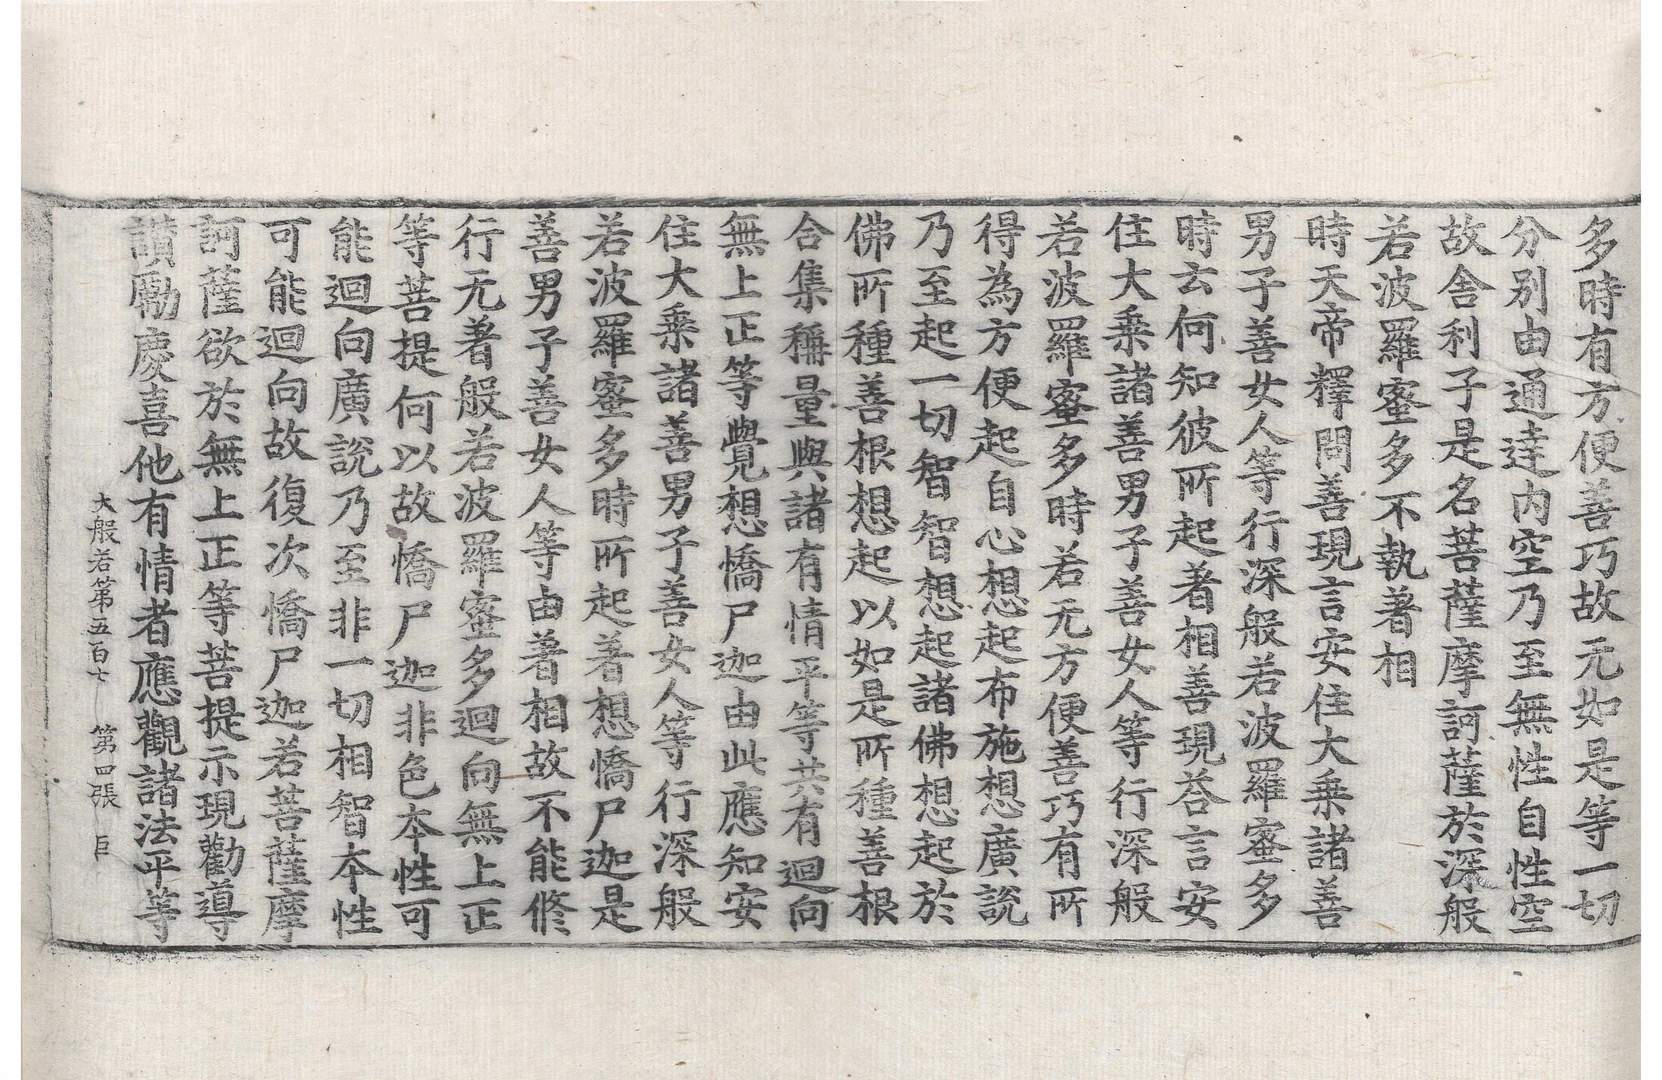 多時有方便善巧故无如是等一切
分别由通達内空乃至無性自性空
故舍利子是名菩薩摩訶薩於深般
若波羅蜜多不執著相
時天帝釋問善現言安住大乘諸善
男子善女人等行深般若波羅蜜多
時云何知彼所起著相善現荅言安
住大乘諸善男子善女人等行深般
若波羅蜜多時若无方便善巧有所
得為方便起自心想起布施想廣說
乃至起一切智智想起諸佛想起於
佛所種善根想起以如是所種善根
合集稱量與諸有情平等共有迴向
無上正等覺想憍尸迦由此應知安
住大乘諸善男子善女人等行深般
若波羅蜜多時所起著想憍尸迦是
善男子善女人等由著相故不能修
行无著般若波羅蜜多迴向無上正
等菩提何以故憍尸迦非色本性可
能迴向廣說乃至非一切相智本性
可能迴向故復次憍尸迦若菩薩摩
訶薩欲於無上正等菩提示現勸導
讃勵慶喜他有情者應觀諸法平等
大般若第五百七 第四張 巨